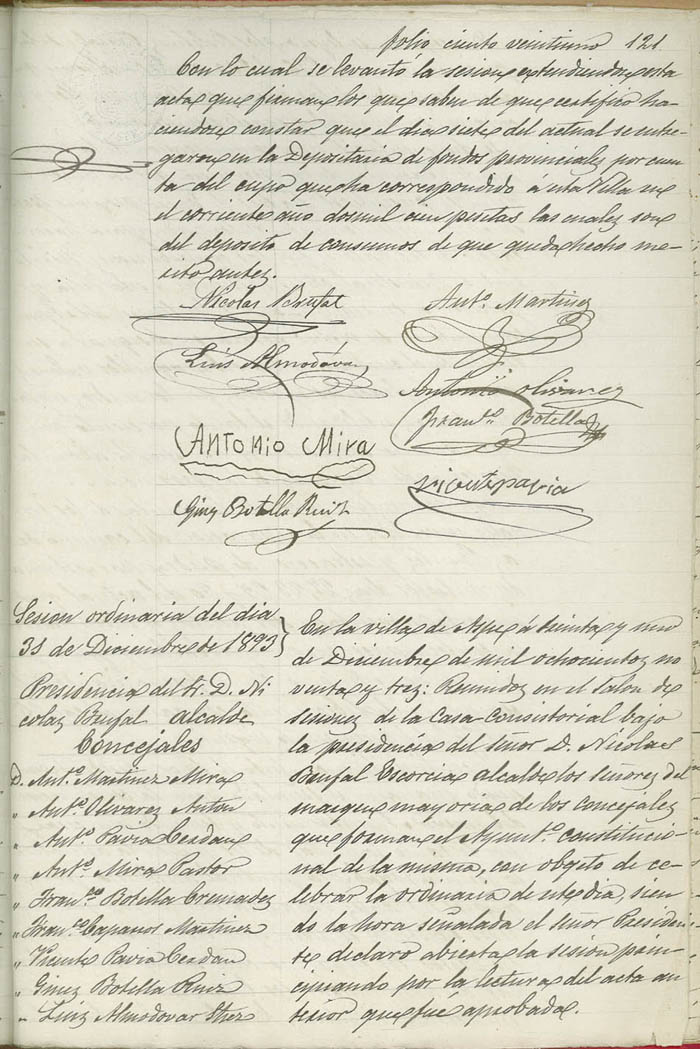 folio ciento veintiuno 121
Con lo cual se levantó la sesion extendiendose esta
acta que firman los que saben de que certifico ha-
ciendose constar que el dia siete del actual se entre-
garon en la Depositaria de fondos provinciales por cuen-
ta del cupo que ha correspondido á esta Villa en
el corriente año dos mil cien pesetas las cuales son
del deposito de consumos de que queda hecho me-
rito antes.
Nicolas Brufal
Ant.º Martinez
Luis Almodóvar
Antonio olivares
Fran.co Botella
Antonio Mira
vicente pavia
Gines Botella Ruiz
Sesion ordinaria del dia
31 de Diciembre de 1893
Presidencia del Sr. D. Ni
colas Brufal alcalde
Concejales
D. Ant.º Martinez Mira
" Ant.º Olivarez Anton
" Ant.º Pavia Cerdan
" Ant.º Mira Pastor
" Fran.co Botella Cremadez
" Fran.co Caparros Martinez
" Vicente Pavia Cerdan
" Ginez Botella Ruiz
" Luiz Almodovar
En la villa de Aspe á treinta y uno
de Diciembre de mil ochocientos no
venta y tres: Reunidos en el Salon de
sesiones de la Casa-Consistorial bajo
la presidencia del señor D. Nicolas
Brufal Escorcia alcalde los señores del
margen mayoria de los concejales
que forman el Ayunt.º constitucio-
nal de la misma, con objeto de ce-
lebrar la ordinaria de este dia, sien-
do la hora señalada el señor Presiden-
te declaro abierta la sesion prin-
cipiando por la lectura del acta an
terior que fué aprobada.